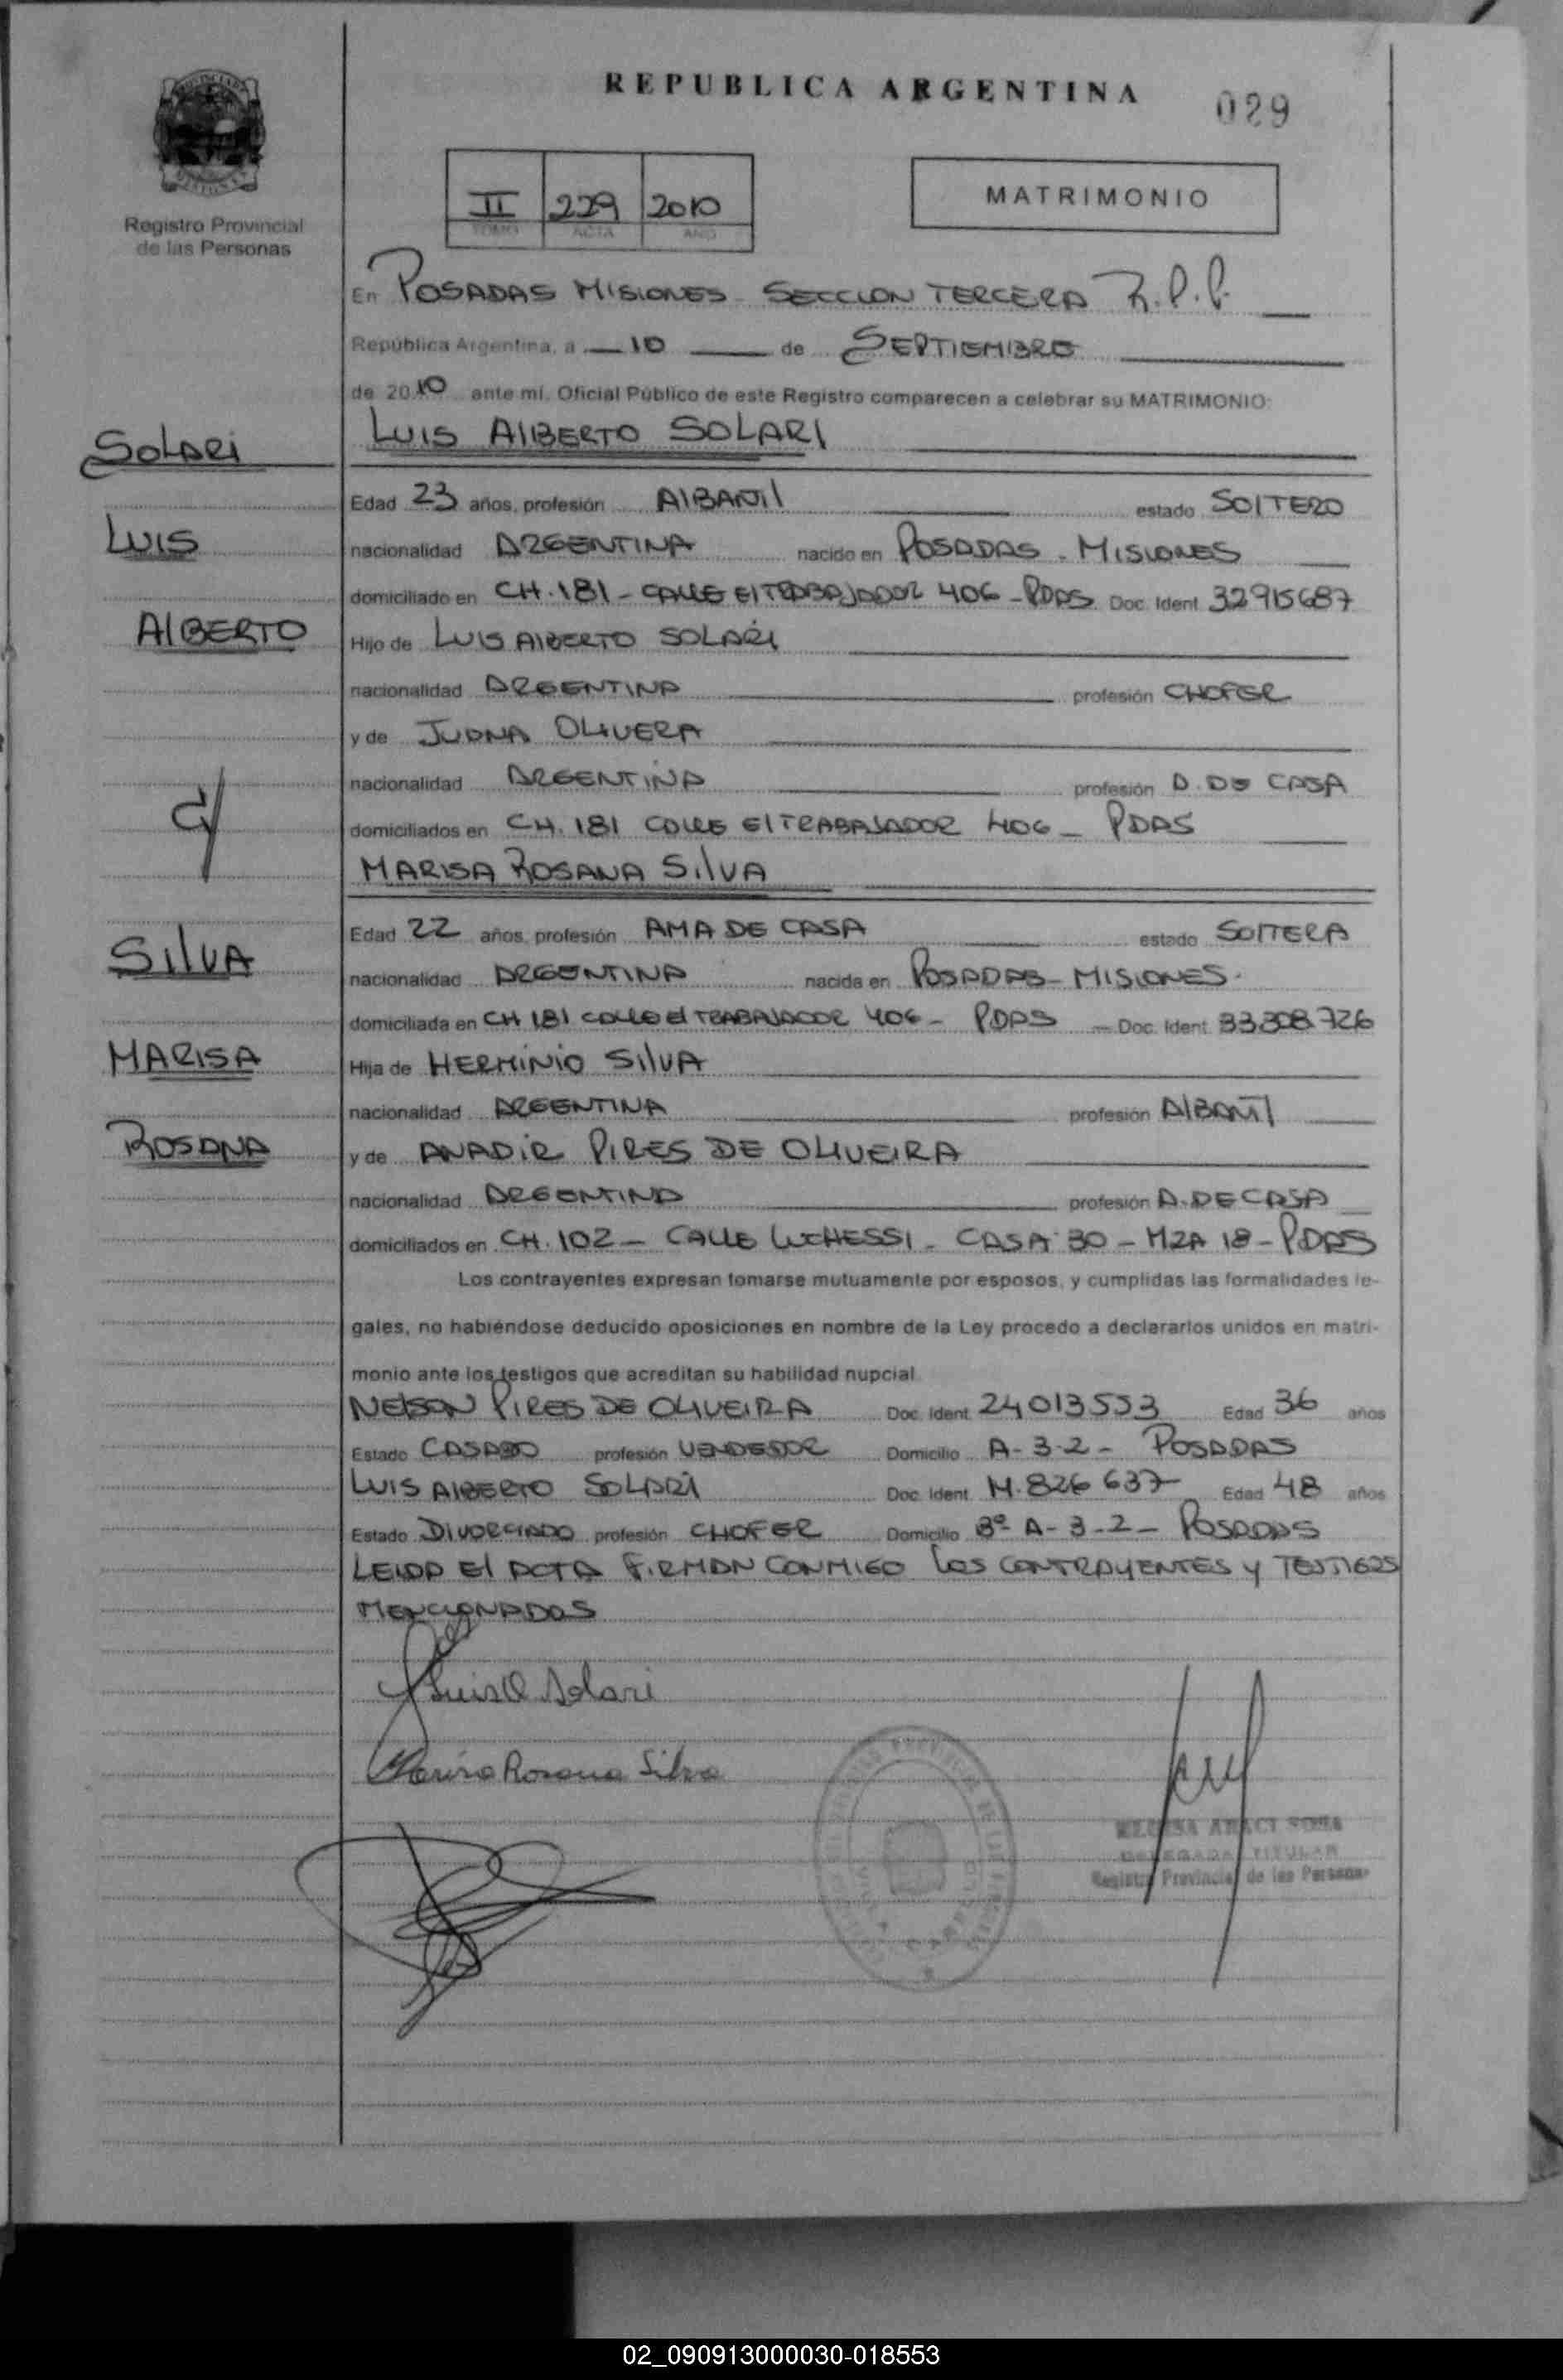 REPUBLICA ARGENTINA
029
II 229 2010
TOMO ACTA AÑO
MATRIMONIO
Registro Provincial
de las Personas
En POSADAS MISIONES - SECCION TERCERA R.P.P.
República Argentina, a 10 de SEPTIEMBRE
de 2010 ante mí, Oficial Público de este Registro comparecen a celebrar su MATRIMONIO:
LUIS AlBERTO SOLARI
SOLARI
Edad 23 años, profesión AlBAÑIl estado SOlTERO
LUIS
nacionalidad ARGENTINA nacido en POSADAS - MISIONES
domiciliado en CH. 181 - CALLE El TRABAJADOR 406 - PDAS Doc. Ident. 32915687
AlBERTO
Hijo de LUIS AlBERTO SOLARI
nacionalidad ARGENTINA profesión CHOFER
y de JUANA OLIVERA
nacionalidad ARGENTINA profesión A. DE CASA
domiciliados en CH. 181 CALLE El TRABAJADOR 406 - PDAS
MARISA ROSANA SIlVA
Edad 22 años, profesión AMA DE CASA estado SOlTERA
SIlVA
nacionalidad ARGENTINA nacida en POSADAS - MISIONES.
domiciliada en CH 181 CALLE El TRABAJADOR 406 - PDAS - Doc. Ident. 33.308.726
MARISA
Hija de HERMINIO SIlVA
nacionalidad ARGENTINA profesión AlBAÑIl
ROSANA
y de ANADIR PIRES DE OLIVEIRA
nacionalidad ARGENTINA profesión A. DE CASA
domiciliados en CH. 102 - CALLE LUCHESSI - CASA 30 - MZA 18 - PDAS
Los contrayentes expresan tomarse mutuamente por esposos, y cumplidas las formalidades le-
gales, no habiéndose deducido oposiciones en nombre de la Ley procedo a declararlos unidos en matri-
monio ante los testigos que acreditan su habilidad nupcial.
NELSON PIRES DE OLIVEIRA Doc. Ident. 24013553 Edad 36 años
Estado CASADO profesión VENDEDOR Domicilio A-3-2 - POSADAS
LUIS AlBERTO SOLARI Doc. Ident. M.826637 Edad 48 años
Estado DIVORCIADO profesión CHOFER Domicilio Bº A-3-2 - POSADAS
LEIDA El ACTA FIRMAN CONMIGO LOS CONTRAYENTES Y TESTIGOS
MENCIONADOS
Luis A Solari
Marisa Rosana Silva
DELEGADA TITULAR
Registro Provincial de las Personas
02_090913000030-018553